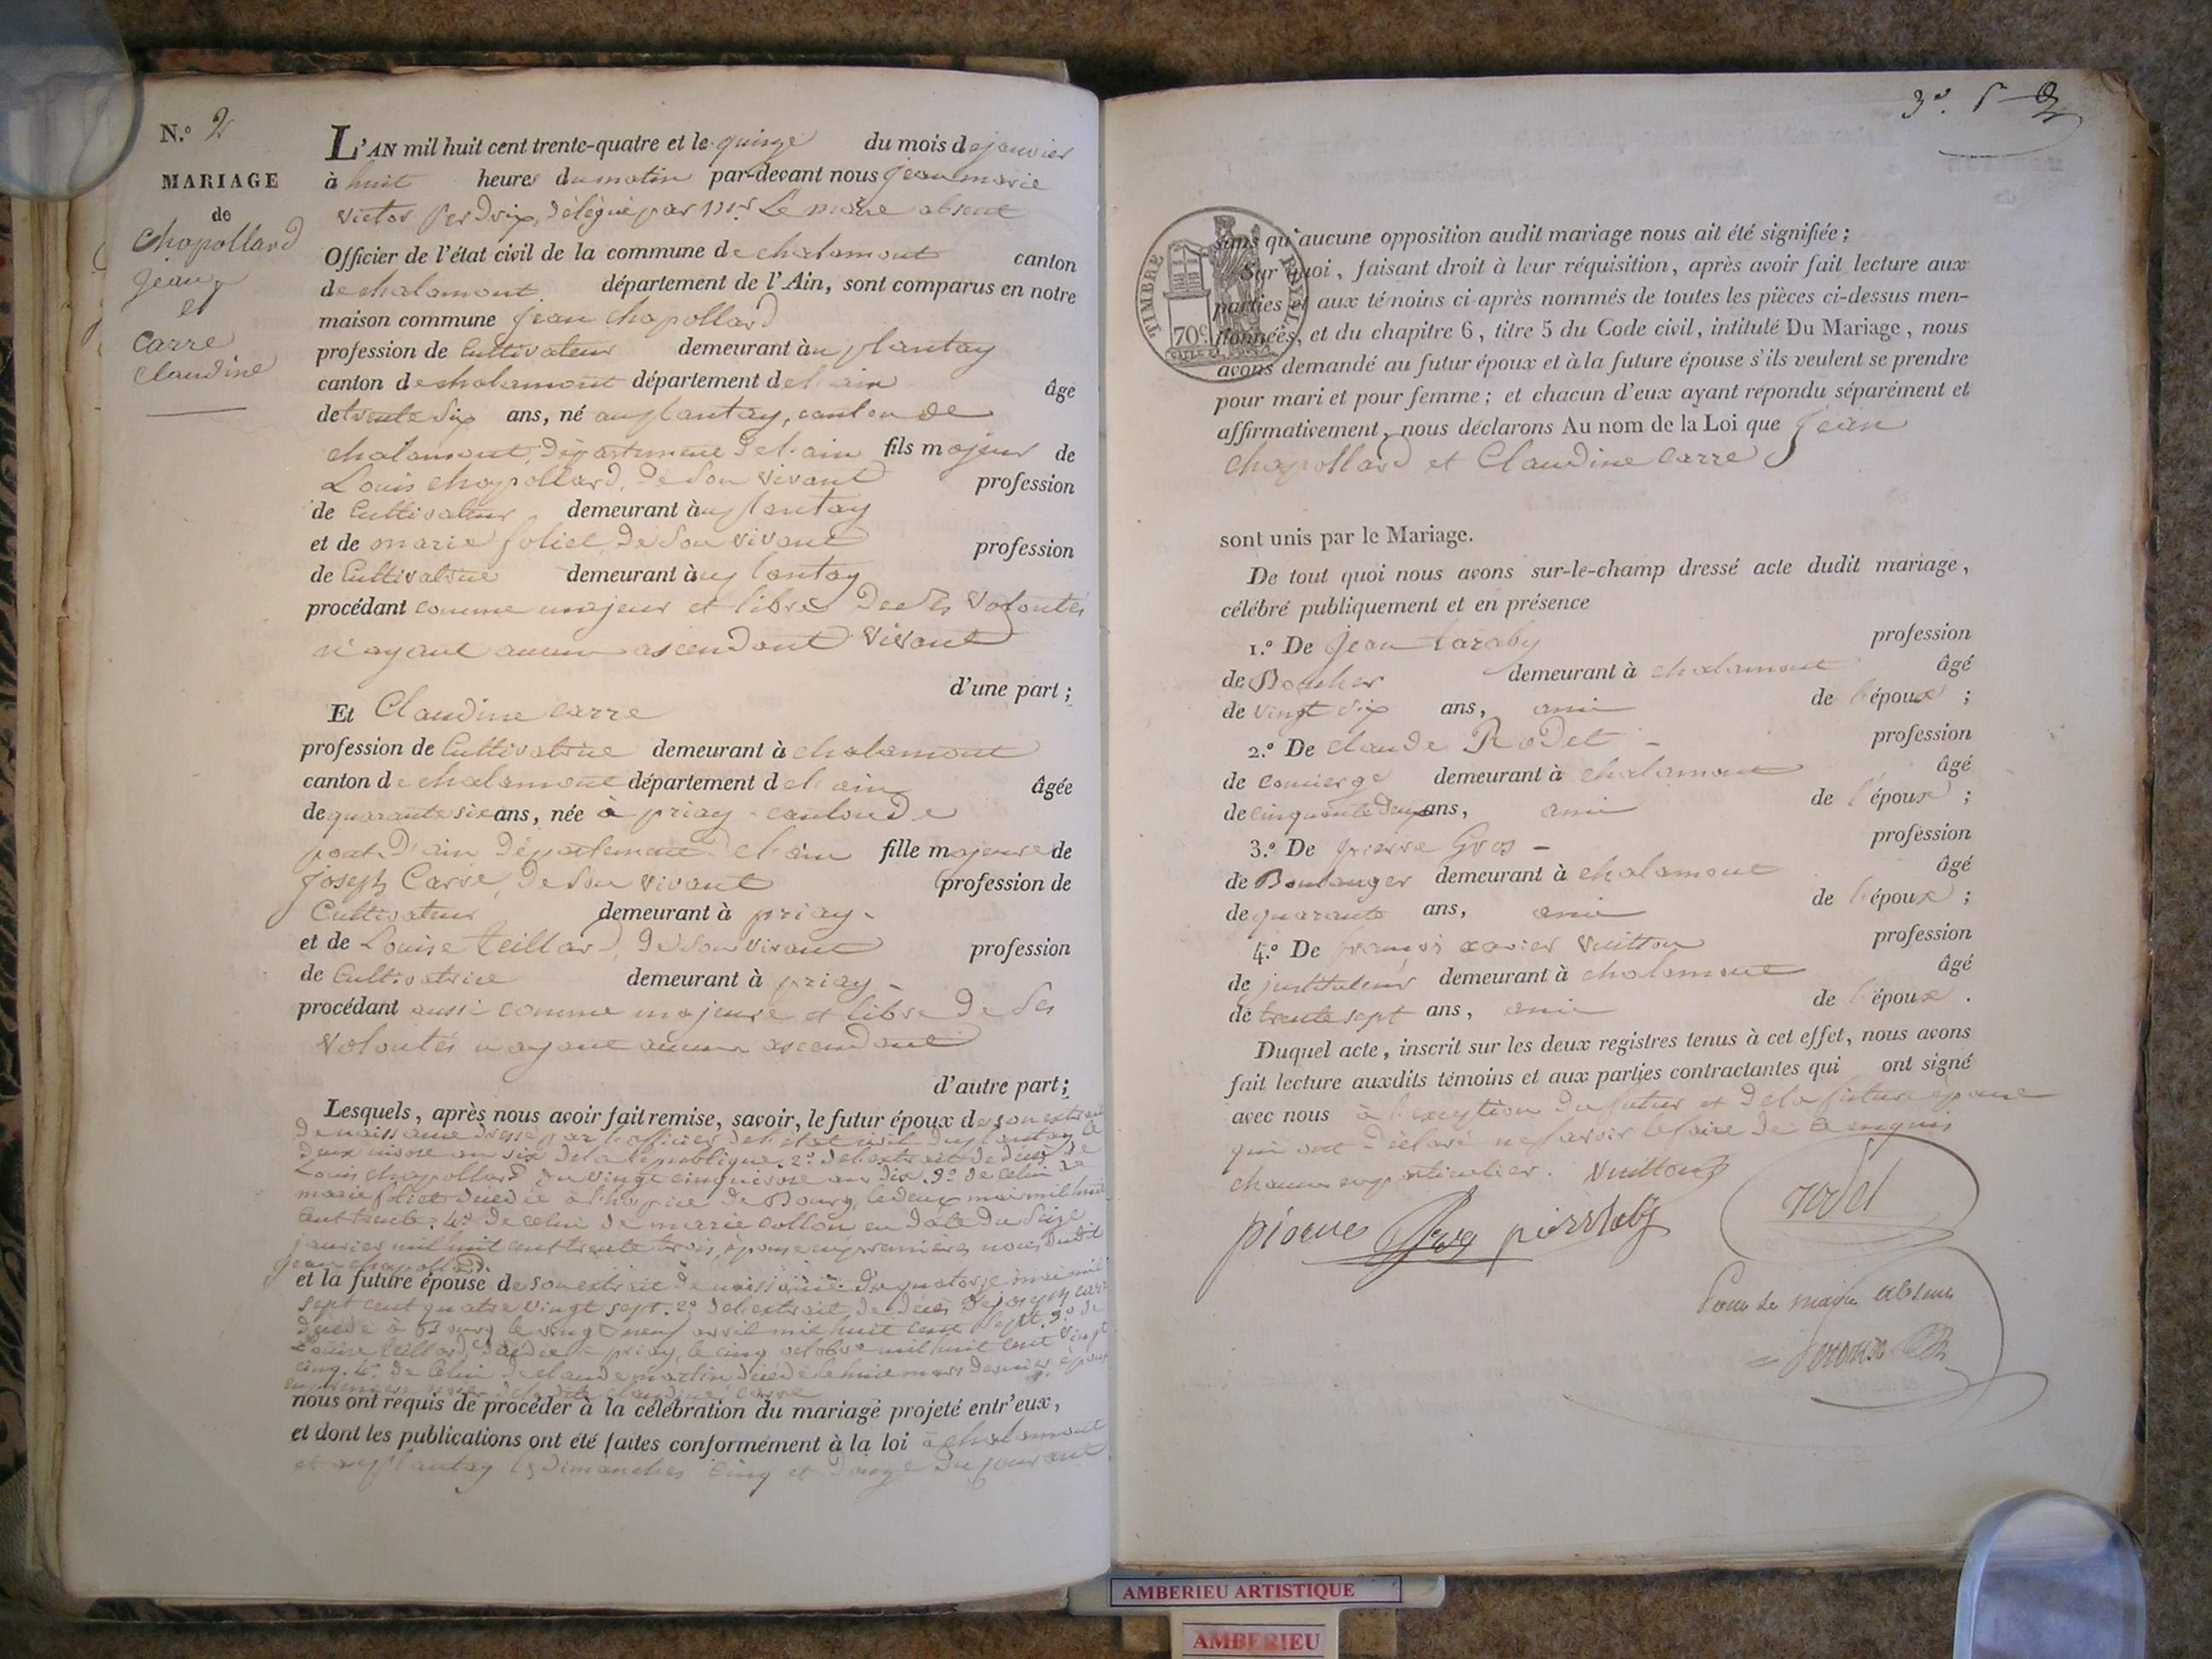 N.° 2
MARIAGE
de
Chapollard
Jean
et
Carre
Claudine
L'AN mil huit cent trente-quatre et le quinze du mois de janvier
à huit heures du matin par-devant nous Jean marie
Victor Perdrix, délégué par Mr Le maire absent
Officier de l'état civil de la commune de chalamont canton
de chalamont département de l'Ain, sont comparus en notre
maison commune Jean Chapollard
profession de Cultivateur demeurant à u plantay
canton de chalamont département de l'ain âgé
de trente six ans, né au plantay, canton de
chalamont, département de l'ain fils majeur de
Louis chapollard, de son vivant profession
de Cultivateur demeurant à u plantay
et de marie foliet, de son vivant profession
de Cultivatrice demeurant à u plantay
procédant comme majeur et libre de ses volontés
n'ayant aucun ascendant vivant
d'une part ;
Et Claudine Carre
profession de Cultivatrice demeurant à chalamont
canton de chalamont département de l'ain âgée
de quarante six ans, née à priay canton de
pont d'ain département de l'ain fille majeure de
Joseph Carre, de son vivant profession de
Cultivateur demeurant à priay
et de Louise teillard, de son vivant profession
de Cultivatrice demeurant à priay
procédant aussi comme majeure et libre de ses
volontés n'ayant aucun ascendant
d'autre part ;
Lesquels, après nous avoir fait remise, savoir, le futur époux de son extrait
de naissance dressé par l'officier de l'état civil du plantay le
deux nivose an six de la république. 2° de l'extrait de décès de
Louis chapollard du vingt cinq nivose an dix. 3° de celui de
marie foliet décédée à l'hospice de Bourg, le deux mai mil huit
cent trente. 4° de celui de marie collon en date du seize
janvier mil huit cent trente trois, épouse en premières noces dudit
Jean chapollard.
et la future épouse de son extrait de naissance du quatorze mai mil
sept cent quatre vingt sept. 2° de l'extrait de décès de joseph carre
décédé à Bourg le vingt neuf avril mil huit cent sept. 3° de
Louise teillard, décédée à priay, le cinq octobre mil huit cent vingt
cinq. 4° de celui de claude martin décédé le huit mars dernier, époux
en premières noces de ladite claudine carre
nous ont requis de procéder à la célébration du mariage projeté entr'eux,
et dont les publications ont été faites conformément à la loi à chalamont
et au plantay les dimanches cinq et douze du courant
TIMBRE ROYAL
70c
sans qu'aucune opposition audit mariage nous ait été signifiée ;
Sur quoi, faisant droit à leur réquisition, après avoir fait lecture aux
parties et aux témoins ci-après nommés de toutes les pièces ci-dessus men-
tionnées, et du chapitre 6, titre 5 du Code civil, intitulé Du Mariage, nous
avons demandé au futur époux et à la future épouse s'ils veulent se prendre
pour mari et pour femme ; et chacun d'eux ayant répondu séparément et
affirmativement, nous déclarons Au nom de la Loi que Jean
Chapollard et Claudine Carre
sont unis par le Mariage.
De tout quoi nous avons sur-le-champ dressé acte dudit mariage,
célébré publiquement et en présence
1.° De Jean profession
de Boucher demeurant à chalamont âgé
de vingt six ans, ami de l'époux ;
2.° De claude Rodet profession
de concierge demeurant à chalamont âgé
de cinquante deux ans, ami de l'époux ;
3.° De pierre Gros profession
de Boulanger demeurant à chalamont âgé
de quarante ans, ami de l'époux ;
4.° De françois xavier Vuitton profession
de instituteur demeurant à chalamont âgé
de trente sept ans, ami de l'époux .
Duquel acte, inscrit sur les deux registres tenus à cet effet, nous avons
fait lecture auxdits témoins et aux parties contractantes qui ont signé
avec nous à l'exception du futur et de la future épouse
qui ont déclaré ne savoir le faire de ce enquis
chacun en particulier. Vuitton
pierre Gros rodet
Pour le maire absent
AMBERIEU ARTISTIQUE
AMBERIEU